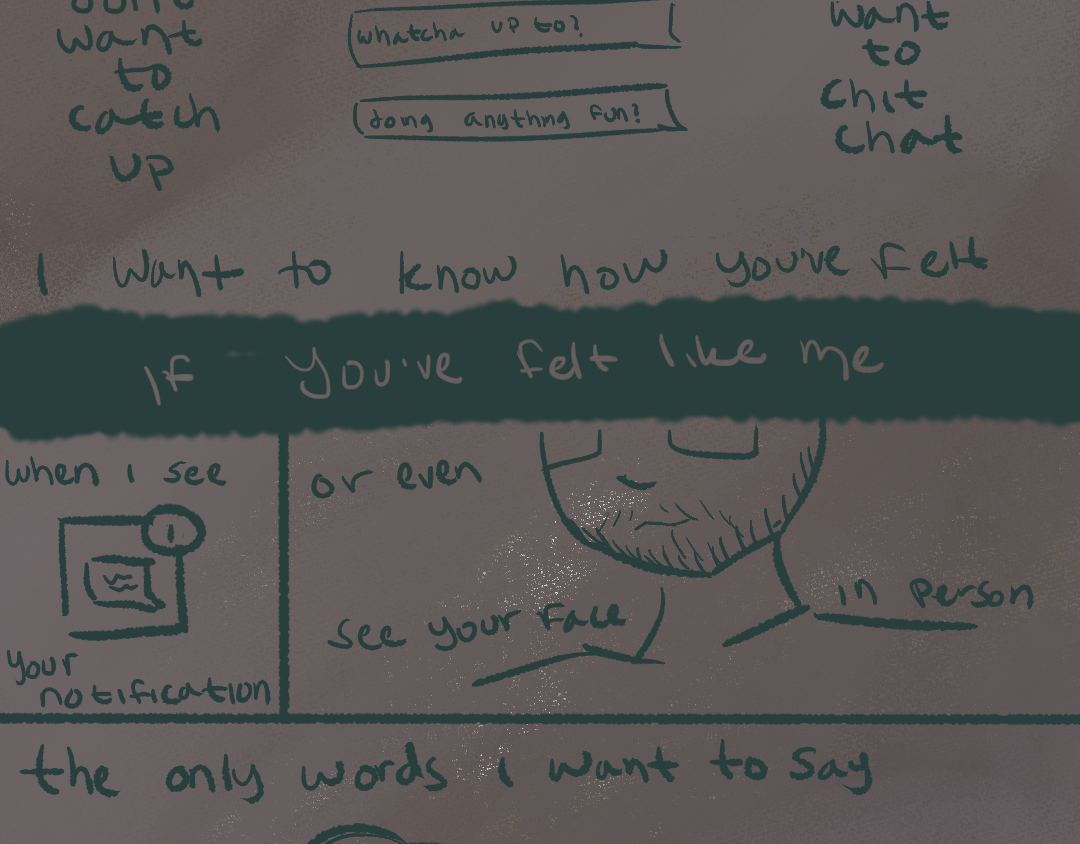 want
to
catch
up
whatcha up to?
doing anything fun?
want
to
chit
chat
I want to know how you've felt
If you've felt like me
when I see
1
your
notification
or even
see your face
in person
the only words I want to say